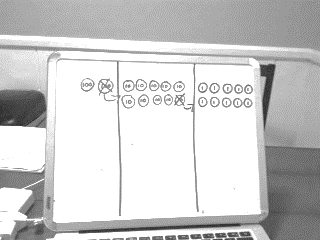 100 100 10 10 10 10 10 1 1 1 1 1
10 10 10 10 10 1 1 1 1 1